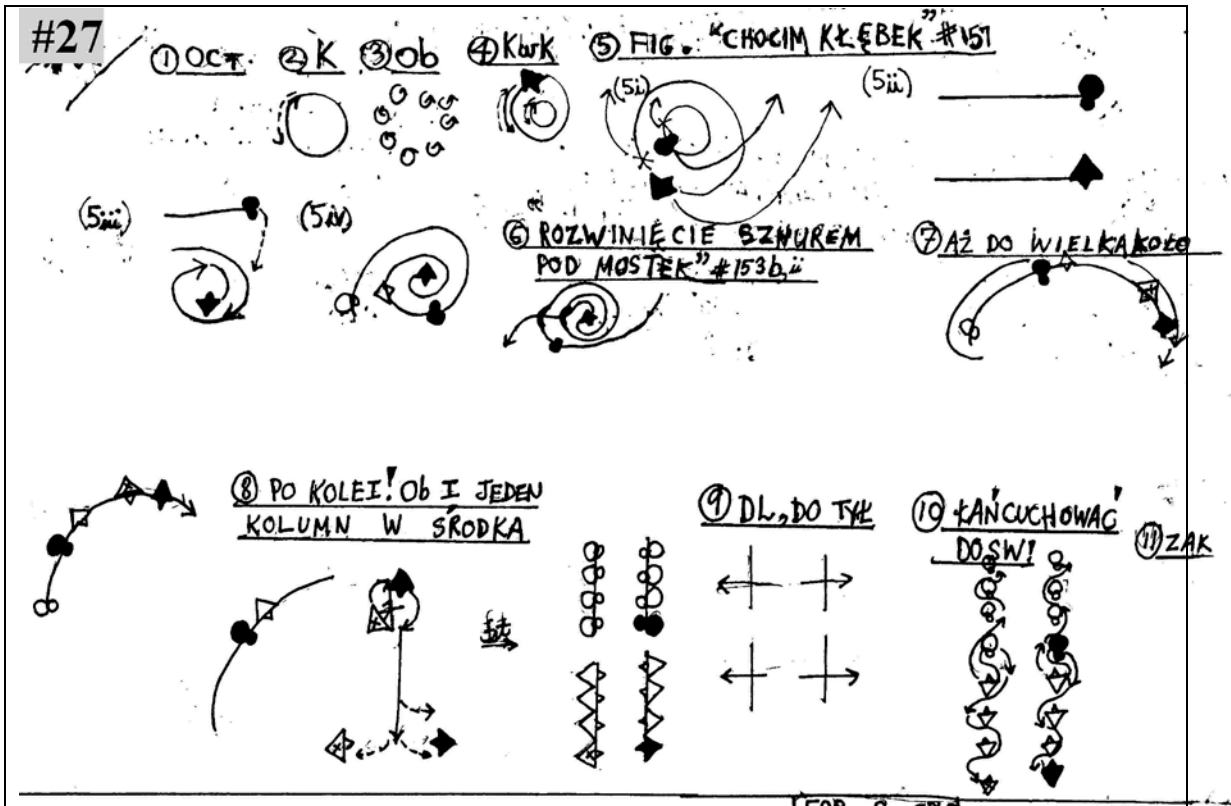 #27
① OCT. ② K ③ Ob ④ KwK ⑤ FIG. "CHOCIM KŁĘBEK" #157
(5i) (5ii)
(5iii) (5iv)
⑥ ROZWINIĘCIE SZNUREM
POD MOSTEK" #153b,ii
⑦ AŻ DO WIELKA KOŁO
⑧ PO KOLEI! Ob I JEDEN
KOLUMN W ŚRODKA
⑨ DL,, DO TYŁ
⑩ ŁAŃCUCHOWAĆ
DO SW!
⑪ ZAK